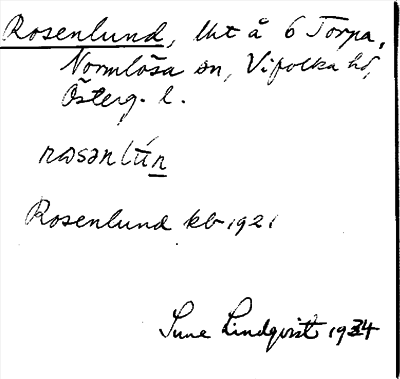 Rosenlund, lht å 6 Torpa,
Normlösa sn, Vifolka hd,
Österg. l.
Rosenlund kb 1921
Sune Lindqvist 1934